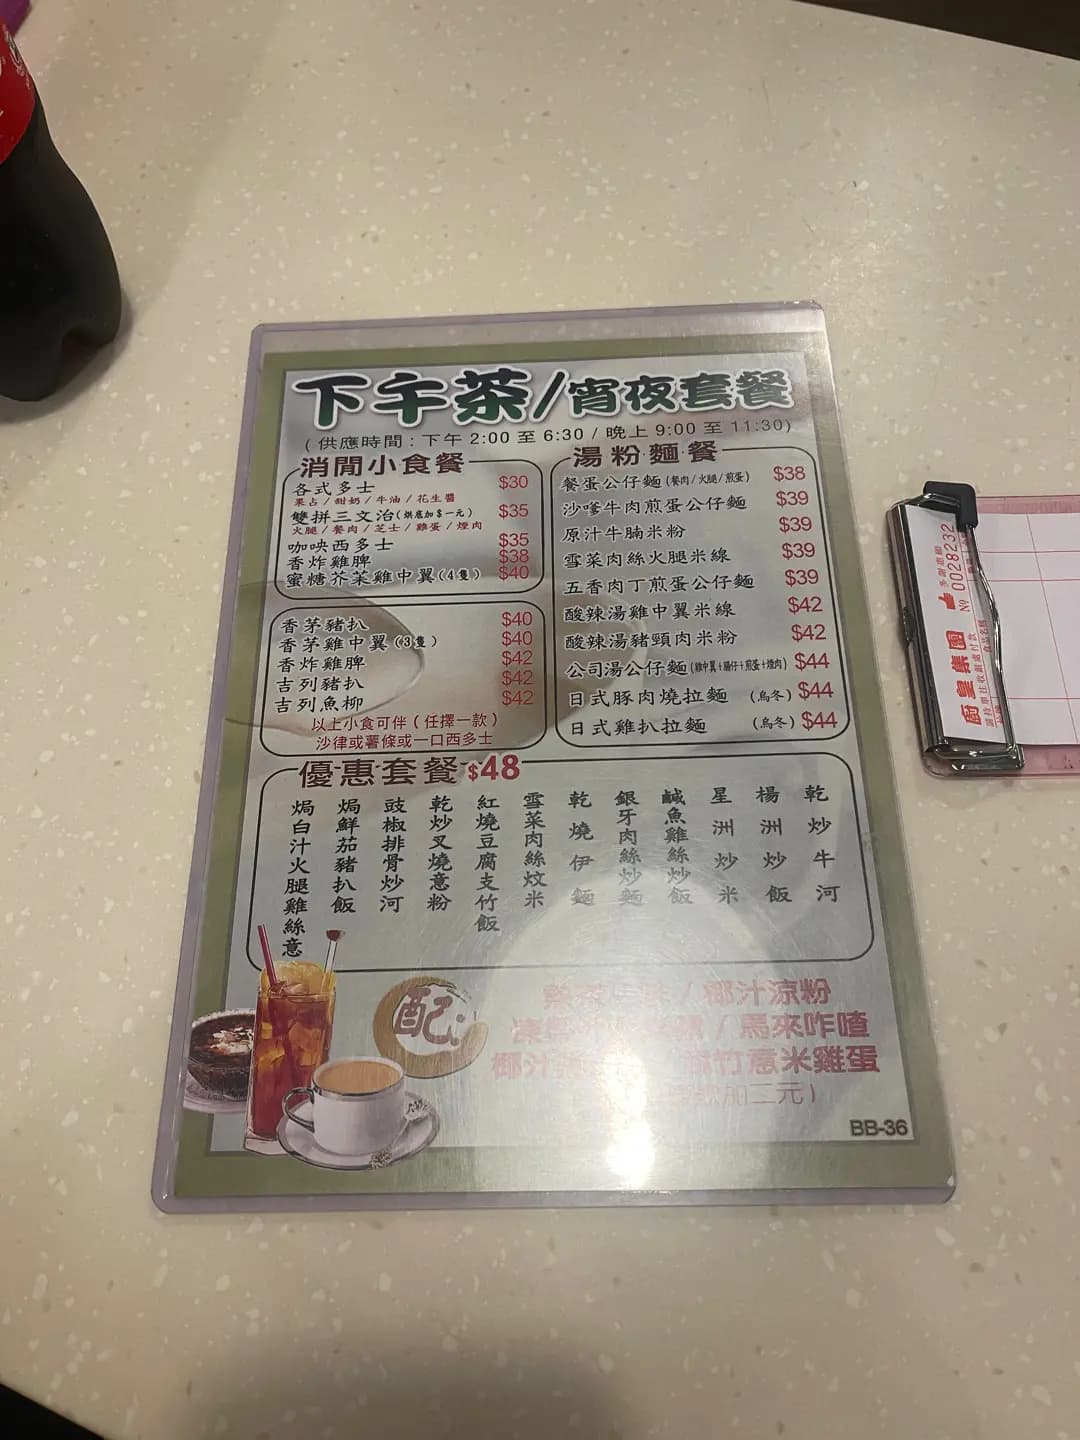 下午茶/宵夜套餐
(供應時間:下午 2:00 至 6:30 / 晚上 9:00 至 11:30)
消閒小食餐
各式多士 $30
果占/甜奶/牛油/花生醬
雙拼三文治(烘底加多一元) $35
火腿/餐肉/芝士/雞蛋/煙肉
咖央西多士 $35
香炸雞脾 $38
蜜糖芥茉雞中翼(4隻) $40
香茅豬扒 $40
香茅雞中翼(3隻) $40
香炸雞脾 $42
吉列豬扒 $42
吉列魚柳 $42
以上小食可伴(任擇一款)
沙律或薯條或一口西多士
湯粉麵餐
餐蛋公仔麵(餐肉/火腿/煎蛋) $38
沙嗲牛肉煎蛋公仔麵 $39
原汁牛腩米粉 $39
雪菜肉絲火腿米線 $39
五香肉丁煎蛋公仔麵 $39
酸辣湯雞中翼米線 $42
酸辣湯豬頸肉米粉 $42
公司湯公仔麵(雞中翼+腸仔+煎蛋+煙肉) $44
日式豚肉燒拉麵 (烏冬) $44
日式雞扒拉麵 (烏冬) $44
優惠套餐 $48
乾炒牛河
楊洲炒飯
星洲炒米
鹹魚雞絲炒飯
銀牙肉絲炒麵
乾燒伊麵
雪菜肉絲炆米
紅燒豆腐支竹飯
乾炒叉燒意粉
豉椒排骨炒河
焗鮮茄豬扒飯
焗白汁火腿雞絲意
配:
/ 椰汁涼粉
/ 馬來咋喳
椰汁 竹意米雞蛋
加二元)
BB-36
廚皇集團
多謝惠顧
№ 0028232
請持單往收銀處付款
食品名稱